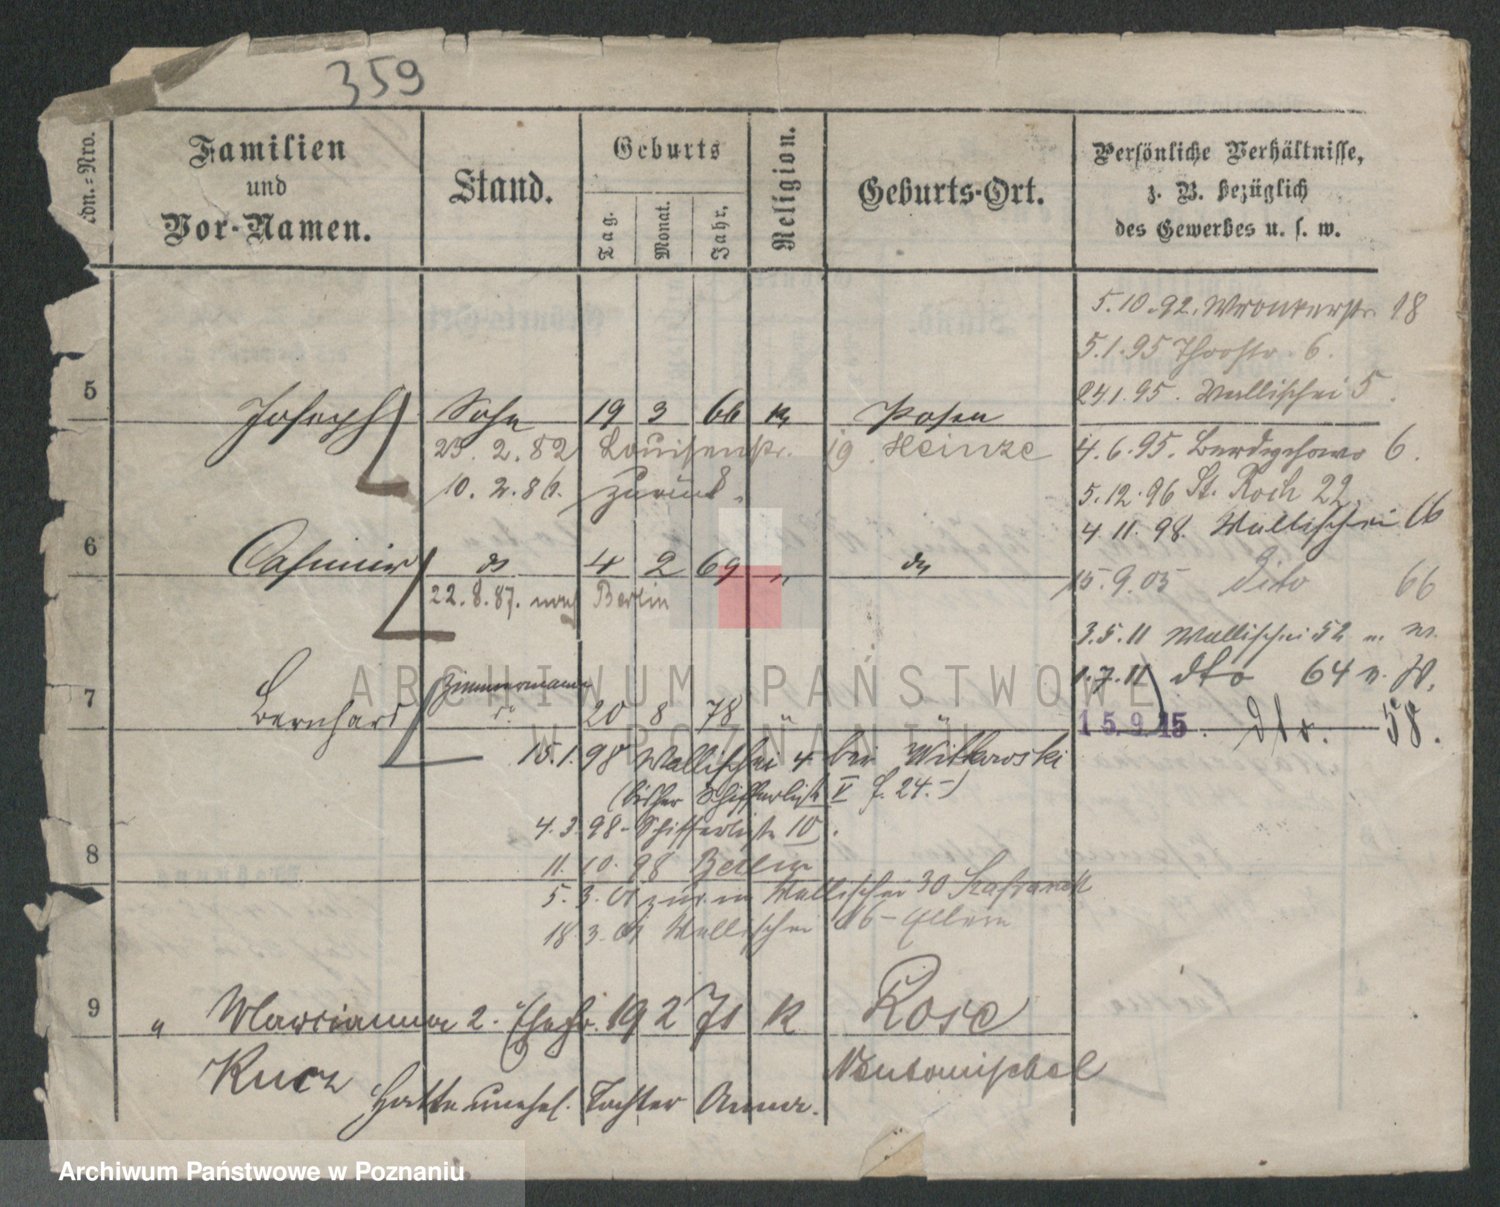 359
Familien
und
Vor-Namen.
Stand.
Geburts
Tag.
Monat.
Jahr.
Religion.
Geburts-Ort.
Persönliche Verhältnisse,
z. B. bezüglich
des Gewerbes u. s. w.
5.10.92. Wronkerstr. 18
5.1.95 Thorstr. 6.
24.1.95. Wallischei 5.
5 Joseph Sohn 19 3 66 K Posen
23.2.82 Louisenstr. 19. Heinze
4.6.95. Berdychowo 6.
10.2.86. zurück.
5.12.96 St. Roch 22.
4.11.98. Wallischei 66
6 Casimir do 4 2 69 " do
15.9.05 dito 66
22.8.87. nach Berlin
3.5.11 Wallischei 52 n. W.
1.7.11 dto 64 n. W.
Zimmermann
7 Bernhard 20 8 78
15.9.15. dto. 58.
15.1.98 Wallischei 4 bei Witkowski
(bisher Schifferliste V f. 24.-)
4.3.98- Schifferliste 10.
11.10.98 Berlin
8
5.3.01 Wallischei 30
18.3.01 Wallischei 66- Eltern
9 " Marianna 2. Ehefr. 19 2 71 K Rose
Kucz
Neutomischel
Hatte unehel. Tochter Anna.
ARCHIWUM PAŃSTWOWE
W POZNANIU
Archiwum Państwowe w Poznaniu